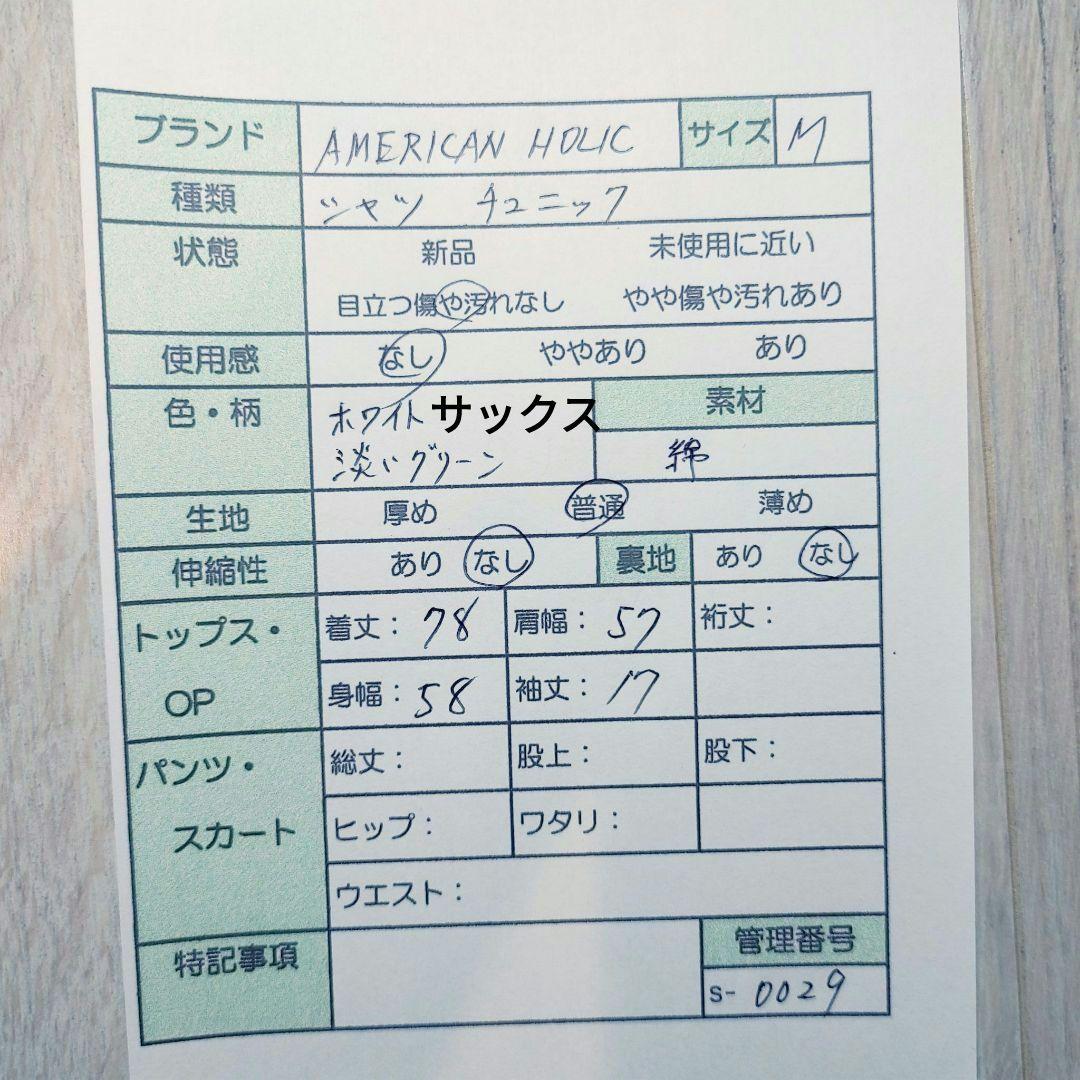 ブランド AMERICAN HOLIC サイズ M
種類 シャツ チュニック
状態 新品 未使用に近い
目立つ傷や汚れなし やや傷や汚れあり
使用感 なし ややあり あり
色・柄 ホワイト サックス 素材
淡いグリーン 綿
生地 厚め 普通 薄め
伸縮性 あり なし 裏地 あり なし
トップス・ 着丈: 78 肩幅: 57 裄丈:
OP 身幅: 58 袖丈: 17
パンツ・ 総丈: 股上: 股下:
スカート ヒップ: ワタリ:
ウエスト:
特記事項 管理番号
s- 0029